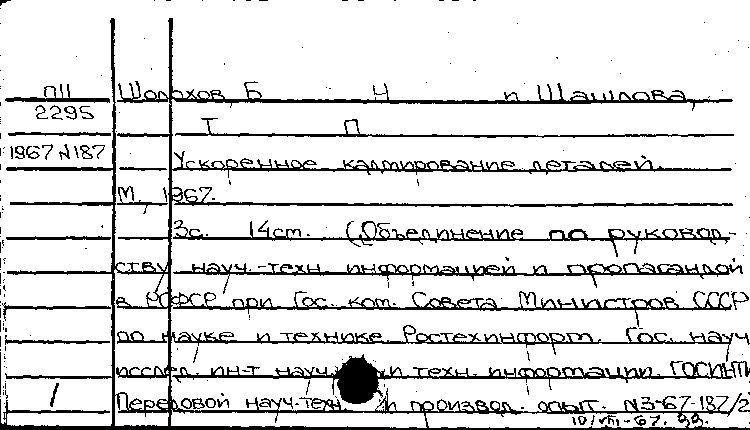 П11 Шолохов, Б Н и Шашлова,
2295
Т П
1967 N187 Ускоренное кадмирование деталей.
М., 1967.
3с. 14ст. (Объединение по руковод-
ству науч.-техн. информацией и пропагандой
в РСФСР при Гос. ком. Совета Министров СССР
по науке и технике. Ростехинформ. Гос. науч
исслед. ин-т науч. и техн. информации. ГОСИНТИ
1 Передовой науч.-техн. и произвол. опыт. N3-67-187/2
10/VIII-67.